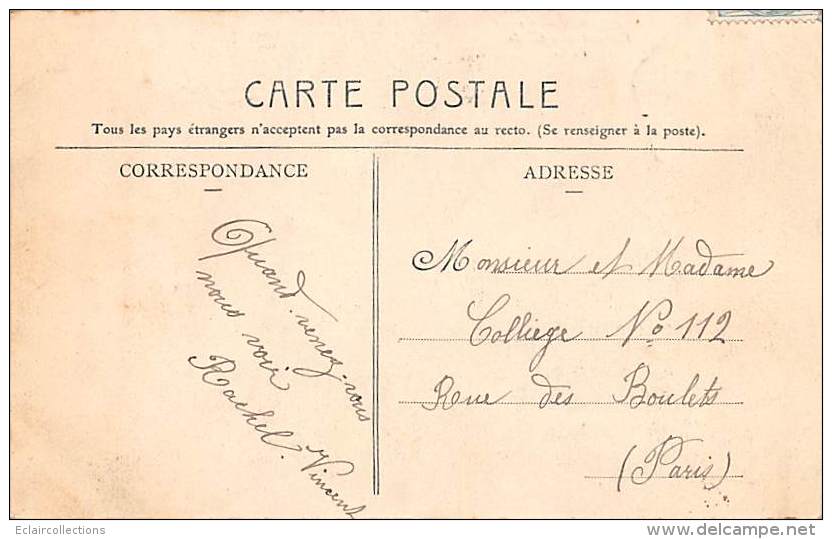 CARTE POSTALE
Tous les pays étrangers n'acceptent pas la correspondance au recto. (Se renseigner à la poste).
CORRESPONDANCE
Quand venez-vous
nous voir
Rachel. Vincent
ADRESSE
Monsieur et Madame
Colliege No 112
Rue des Boulets
(Paris)
Eclaircollections
www.delcampe.net